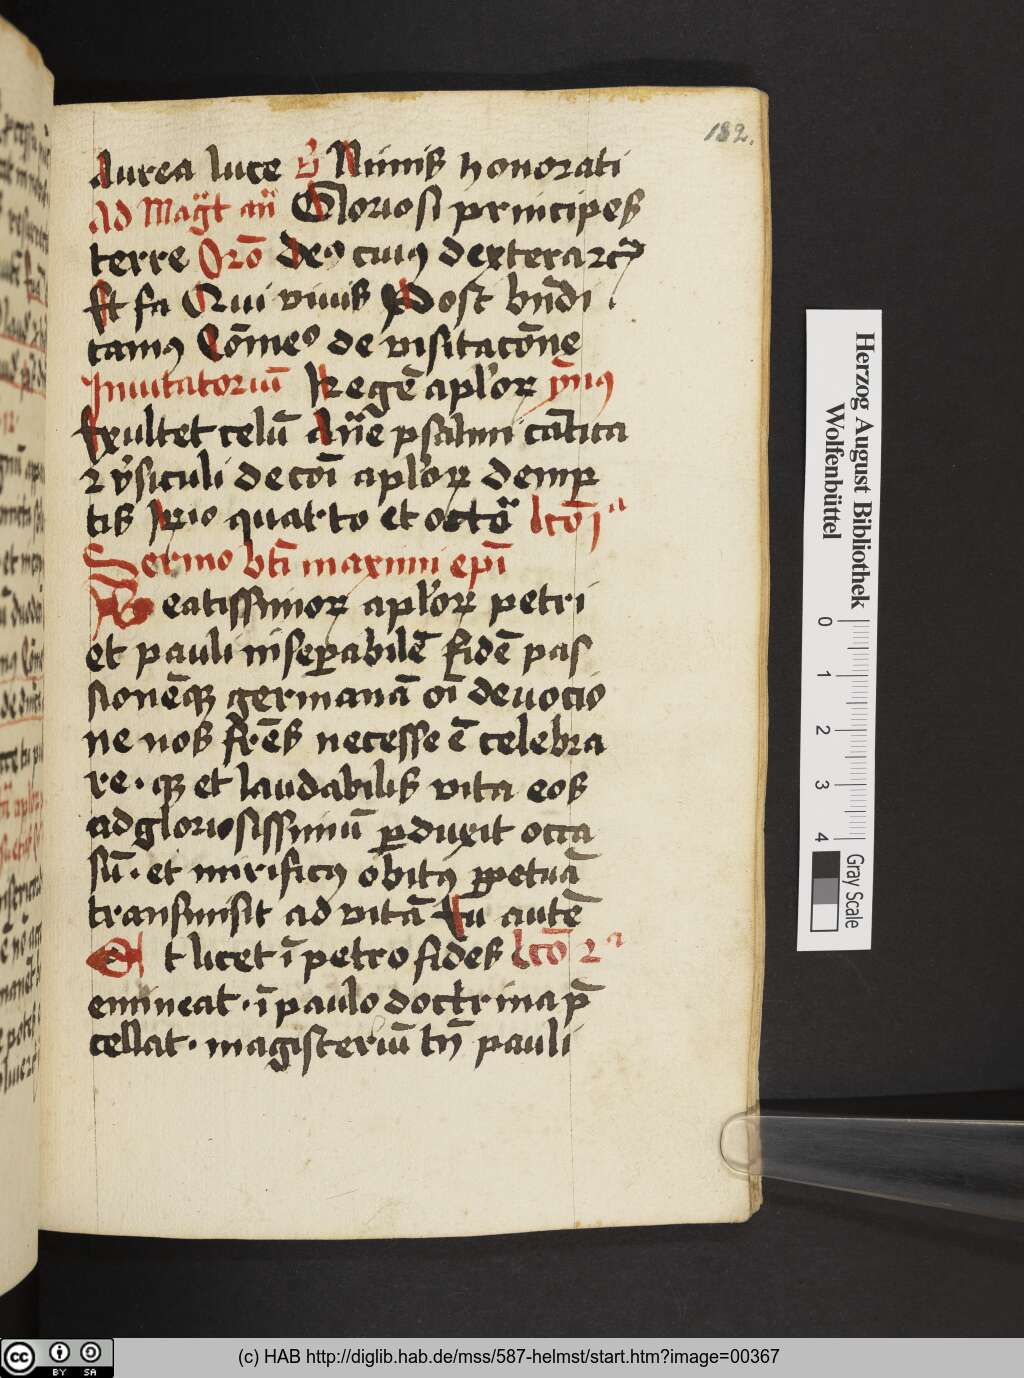 182.
Aurea luce v̄ Nimis honorati
Ad Mag̅t an̅ Gloriosi principes
terre Oro̅ deꝰ cuiꝰ dextera ꝛc̅
Et fa Qui viuis Post bn̅di
camꝰ Co̅meo̅ de visitaco̅ne
Inuitatoriu̅ Rege̅ aplo̅ꝝ ym̅nꝰ
Exultet celu̅ Añe psalmi ca̅tica
ꝛ v̅siculi de co̅i aplo̅ꝝ demp
tis quarto et octo̅ lco̅ jᵃ
Sermo bt̅i maximi ep̅i
Beatissimoꝝ aplo̅ꝝ petri
et pauli insepa̅bile̅ fide̅ pas
sione̅qꝫ germana̅ oi̅ deuocio
ne nos fr̅es necesse e̅ celebra
re · qꝫ et laudabilis vita eos
ad gloriosissimu̅ ꝑduxit occa
su̅ · et mirificꝰ obitꝰ ꝑpetua̅
transmisit ad vita̅ Tu aute̅
Et licet i̅ petro fides lco̅ 2ᵃ
emineat · i̅ paulo doctrina p̅
cellat · magisteriu̅ tn̅ pauli
Herzog August Bibliothek
Wolfenbüttel
0 1 2 3 4
Gray Scale
cc BY SA
(c) HAB http://diglib.hab.de/mss/587-helmst/start.htm?image=00367